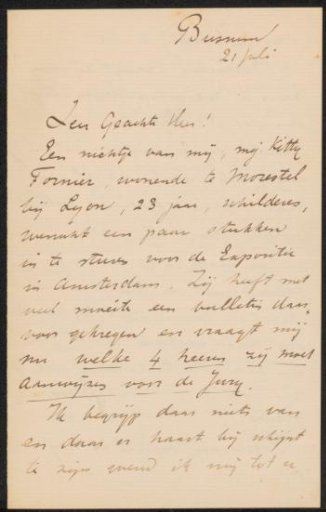 Bussum
21 Juli
Zeer Geachte Heer!
Een nichtje van mij, mej Kitty
Fornier, wonende te Morestel
bij Lyon, 23 jaar, schilderes,
wenscht een paar stukken
in te sturen voor de Expositie
in Amsterdam. Zij heeft met
veel moeite een bulletin daar-
voor gekregen en vraagt mij
nu welke 4 heeren zij moet
aanwijzen voor de Jury.
Ik begrijp daar niets van
en daar er haast bij schijnt
te zijn wend ik mij tot u